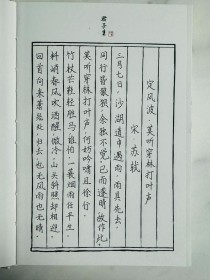 定风波·莫听穿林打叶声
宋 苏轼
三月七日，沙湖道中遇雨，雨具先去，
同行皆狼狈，余独不觉。已而遂晴，故作此。
莫听穿林打叶声，何妨吟啸且徐行。
竹杖芒鞋轻胜马，谁怕？一蓑烟雨任平生。
料峭春风吹酒醒，微冷，山头斜照却相迎。
回首向来萧瑟处，归去，也无风雨也无晴。